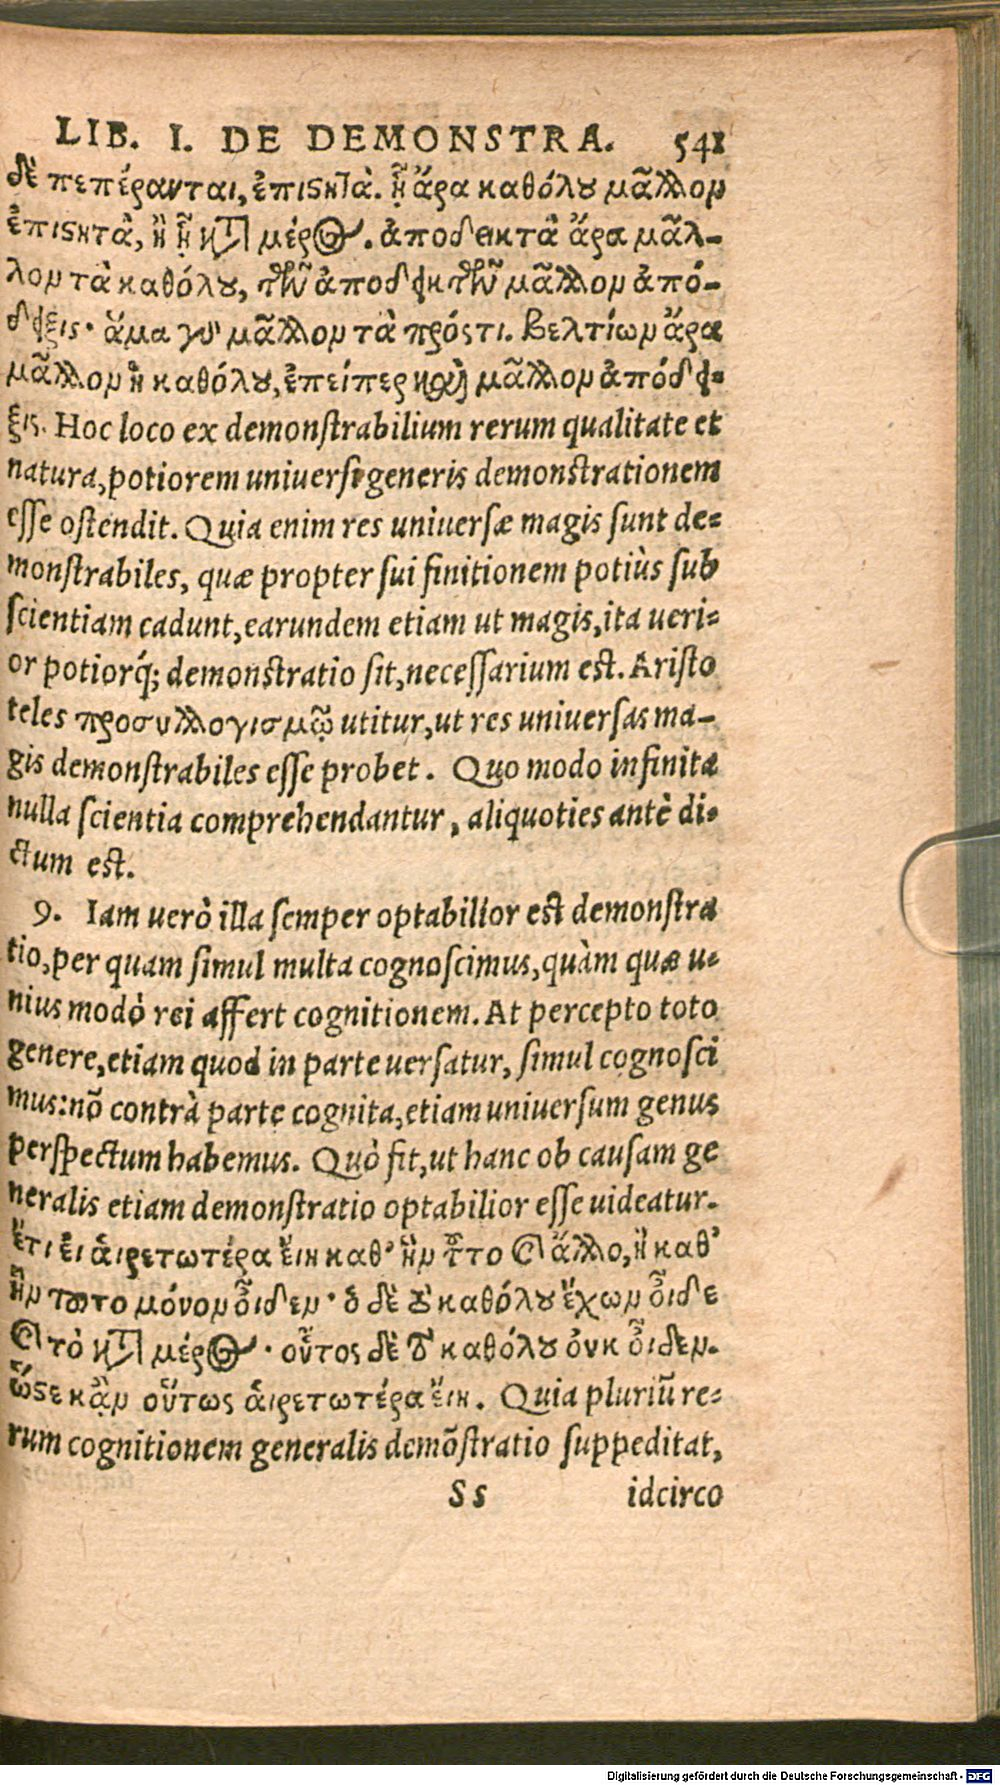 LIB. I. DE DEMONSTRA. 541
δὲ πεπέρανται, ἐπιστητά. ᾗ ἄρα καθόλου μᾶλλον
ἐπιστητὰ, ἢ ᾗ κατὰ μέρος. ἀποδεικτὰ ἄρα μᾶλ-
λον τὰ καθόλου, τῶν ἀποδεικτῶν μᾶλλον ἀπό-
δειξις· ἅμα γὰρ μᾶλλον τὰ πρόστι. Βελτίων ἄρα
μᾶλλον ἡ καθόλου, ἐπείπερ καὶ μᾶλλον ἀπόδει-
ξις. Hoc loco ex demonſtrabilium rerum qualitate et
natura, potiorem uniuerſi generis demonſtrationem
eſſe oſtendit. Quia enim res uniuerſæ magis ſunt de-
monſtrabiles, quæ propter ſui finitionem potiùs ſub
ſcientiam cadunt, earundem etiam ut magis, ita ueri-
or potiorq́; demonſtratio ſit, neceſſarium eſt. Ariſto
teles προσυλλογισμῷ utitur, ut res uniuerſas ma-
gis demonſtrabiles eſſe probet. Quo modo infinita
nulla ſcientia comprehendantur, aliquoties antè di-
ctum eſt.
9. Iam uerò illa ſemper optabilior eſt demonſtra
tio, per quam ſimul multa cognoſcimus, quàm quæ u-
nius modò rei affert cognitionem. At percepto toto
genere, etiam quod in parte uerſatur, ſimul cognoſci
mus: nō contrà parte cognita, etiam uniuerſum genus
perſpectum habemus. Quò fit, ut hanc ob cauſam ge
neralis etiam demonſtratio optabilior eſſe uideatur.
ἔτι εἰ αἱρετωτέρα ἔιη καθ’ ἣν τοῦτο καὶ ἄλλο, ἢ καθ’
ἣν τοῦτο μόνον οἶδεν· ὁ δὲ τὸ καθόλου ἔχων οἶδε
καὶ τὸ κατὰ μέρος· οὗτος δὲ τὸ καθόλου ὀυκ οἶδεν.
ὥστε κἂν οὕτως αἱρετωτέρα ἔιη. Quia pluriū re-
rum cognitionem generalis demōſtratio ſuppeditat,
Ss idcirco
Digitalisierung gefördert durch die Deutsche Forschungsgemeinschaft - DFG